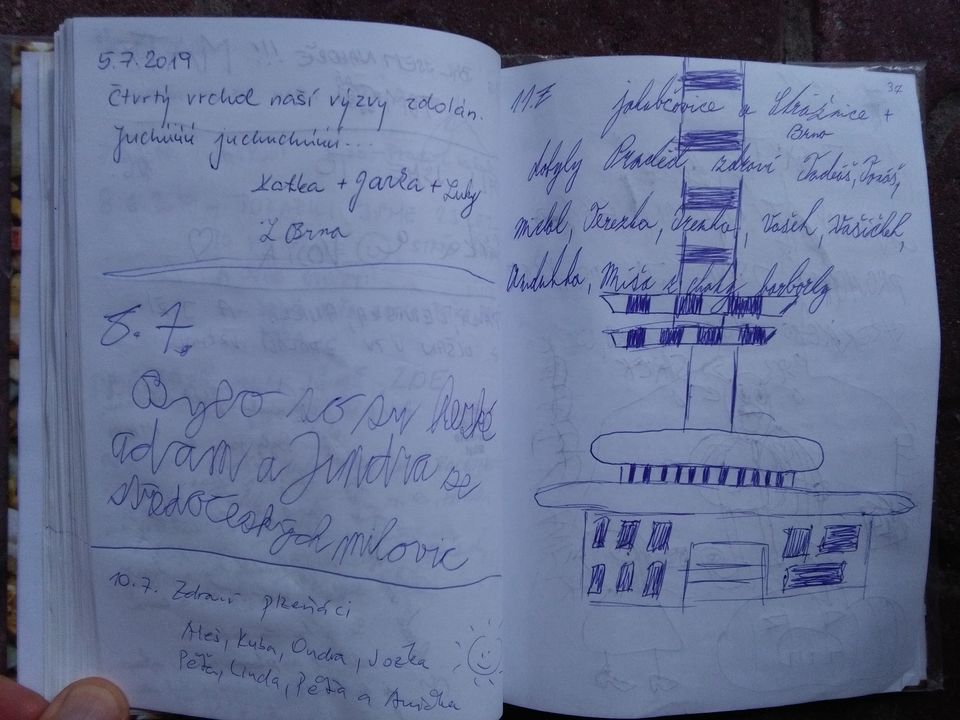 5.7.2019
Čtvrtý vrchol naší výzvy zdolán.
Juchúúú juchuchúúú...
Katka + Jarka + Luky
Z Brna
8.7.
Bylo to su heské
adam a Jindra ze
středočeských milovic
10.7. Zdraví plzeňáci
Aleš, Kuba, Ondra, Jočka
Péťa, Linda, Péťa a Anička
37
11.7 jakubčovice a Strážnice +
Brno
dobyly Praděd. zdraví Tadeáš, Tomáš,
michl, Terezka, Irenka, Vašek, Vašíček,
Andulka, Míša z chaty barborky